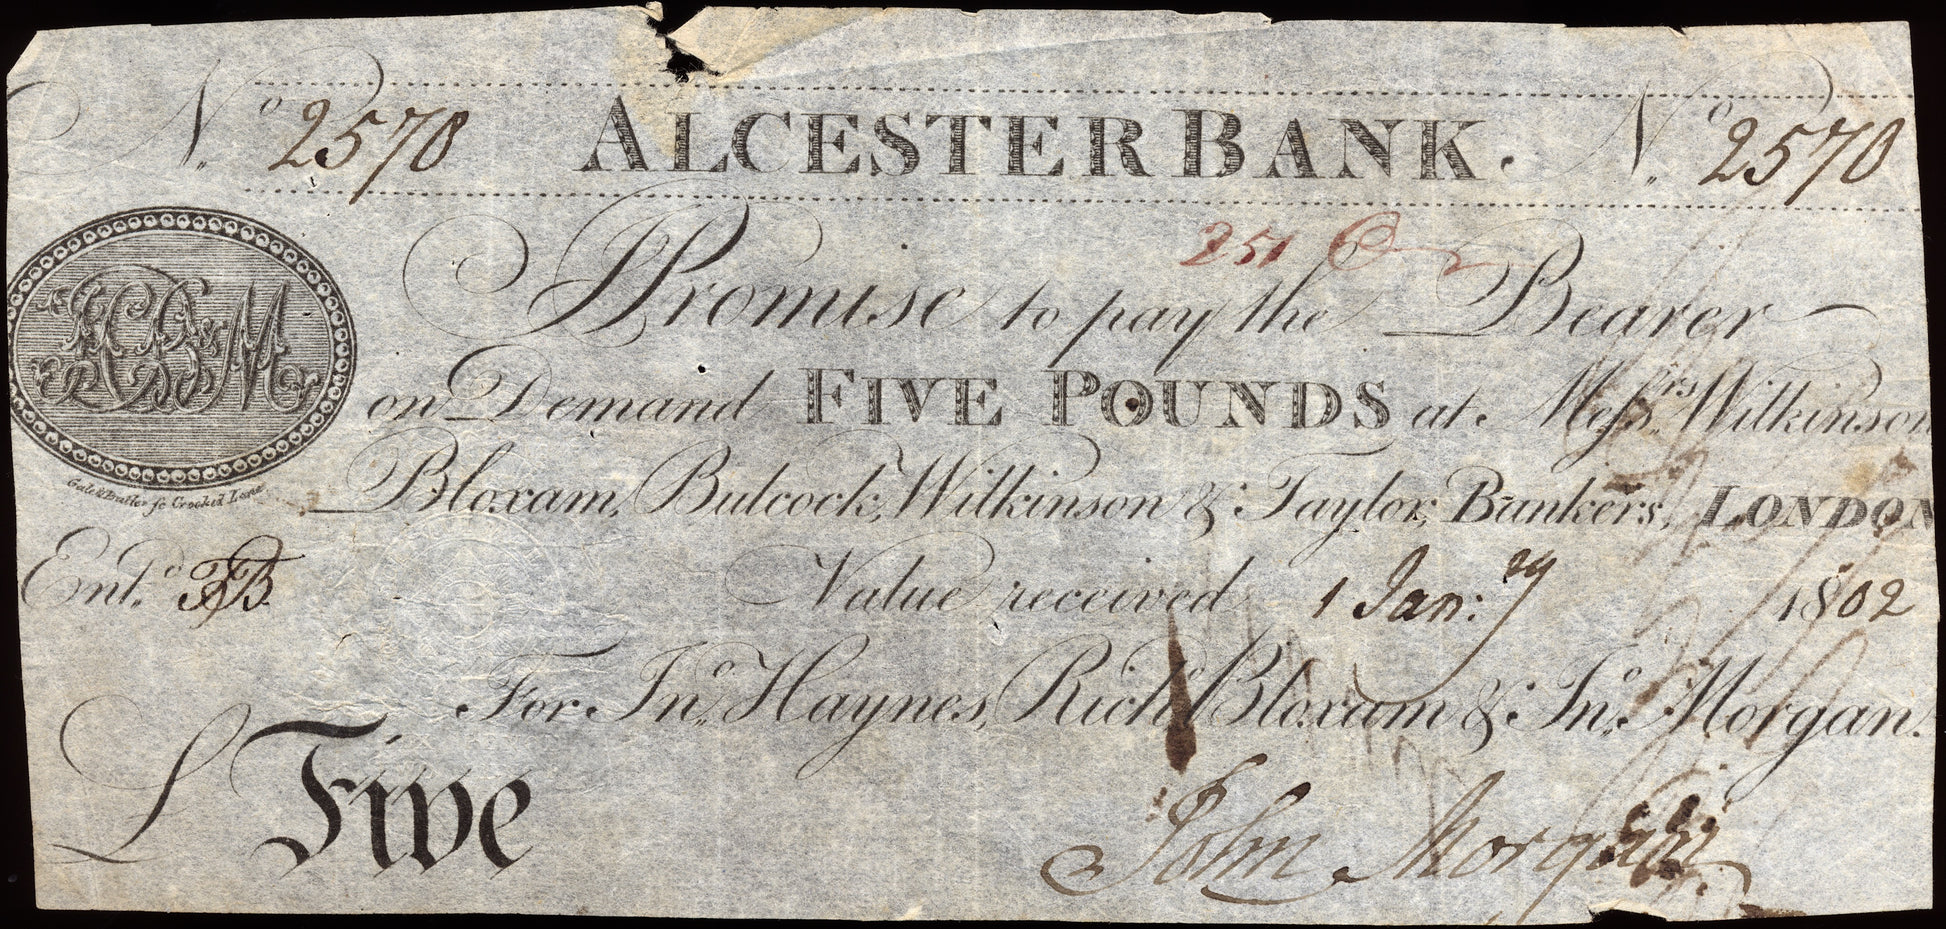 No. 2570 ALCESTER BANK. No. 2570
251
I Promise to pay the Bearer
on Demand FIVE POUNDS at Messrs. Wilkinson
Bloxam, Bulcock, Wilkinson & Taylor, Bankers, LONDON
Entd.
Value received 1 Jan:y 1802
For Jno. Haynes, Richd. Bloxam & Jno. Morgan.
£ Five
John Morgan